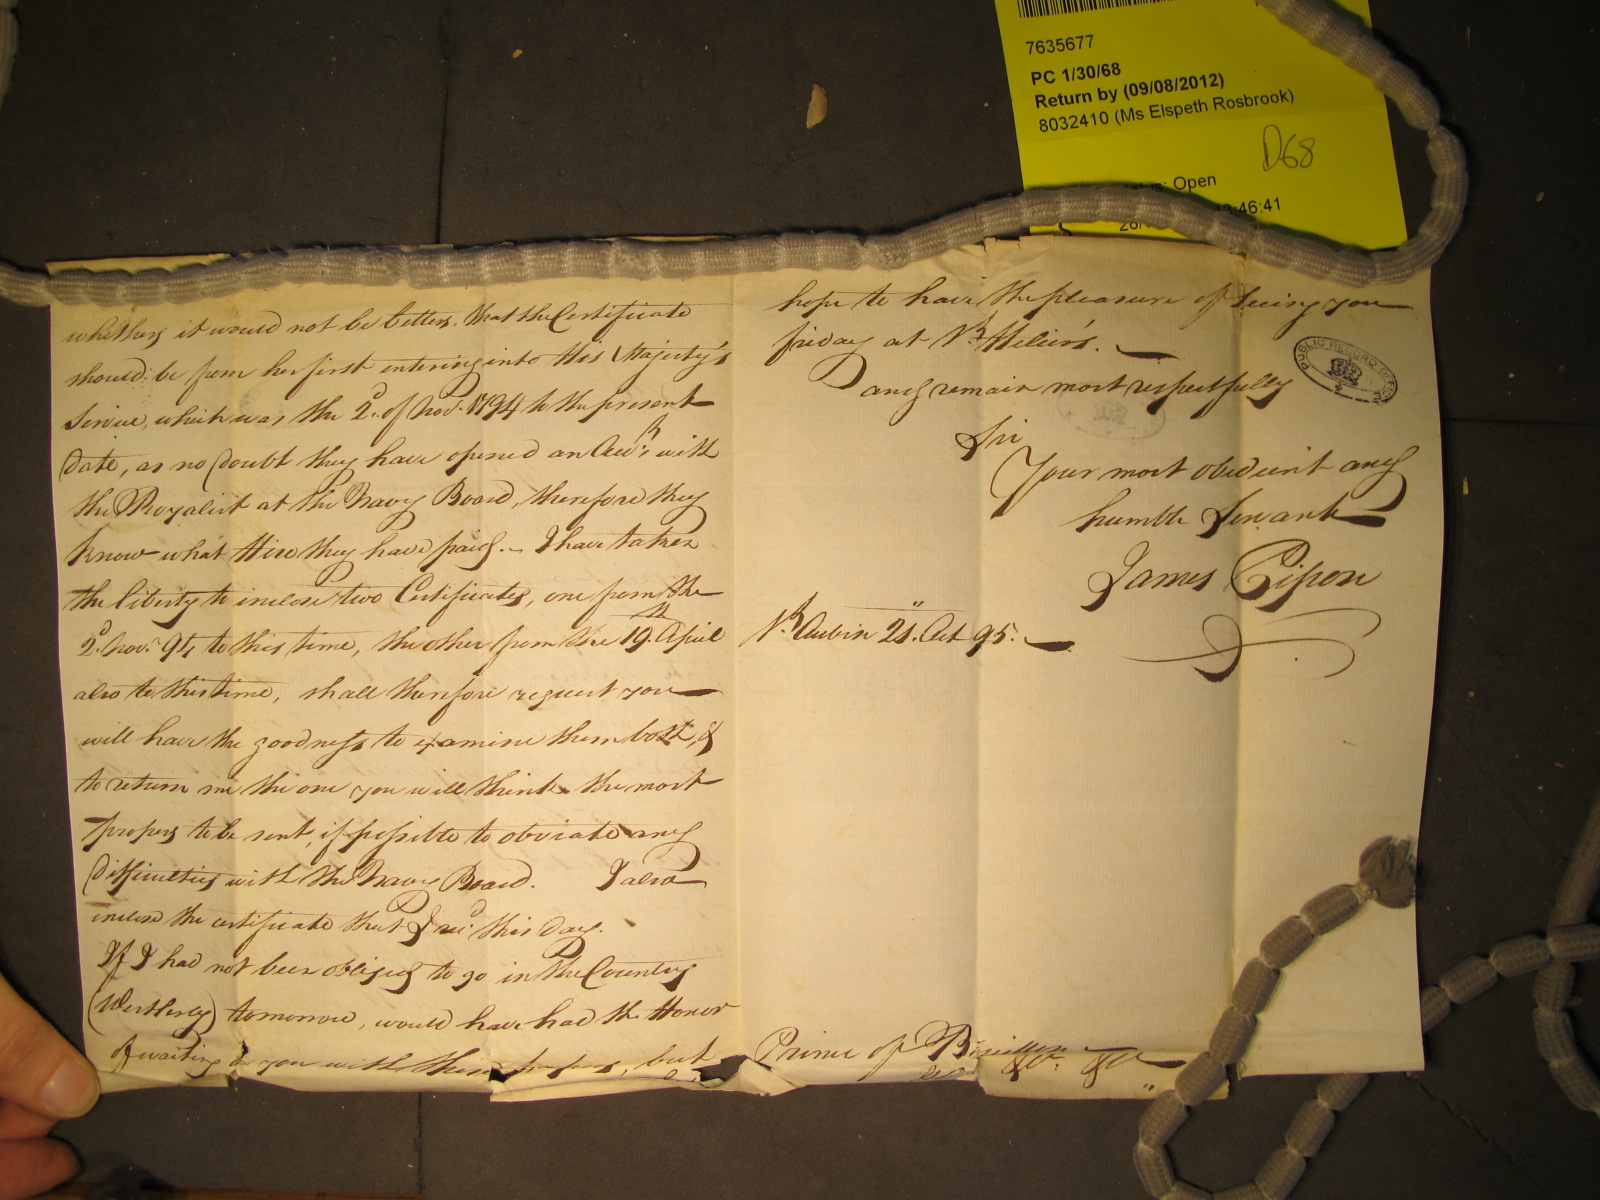 7635677
PC 1/30/68
Return by (09/08/2012)
8032410 (Ms Elspeth Rosbrook)
D68
Open
:46:41
whether it would not be better, that the Certificate
should be from her first entering into His Majesty's
Service, which was the 2d. of Novr. 1794 to the present
Date, as no doubt they have opened an Acct. with
the Royalist at the Navy Board, therefore they
know what Hire they have paid. I have taken
the liberty to inclose two Certificates, one from the
2d. Novr. 94 to this time, the other from the 19th. April
also to this time, shall therefore request you
will have the goodness to examine them both, &
to return me the one you will think the most
proper to be sent, if possible to obviate any
Difficulties with the Navy Board. I also
inclose the certificate that I recd. this day.
If I had not been obliged to go in the Country
(Westerly) tomorrow, would have had the Honor
of waiting on you with these papers, but
hope to have the pleasure of seeing you
friday at St. Helier's.
and remain most respectfully
Sir
Your most obedient and
humble Servant
James Pipon
St. Aubin 21. Oct 95.
Prince of Bouillon
&c. &c
PUBLIC RECORD OFFICE